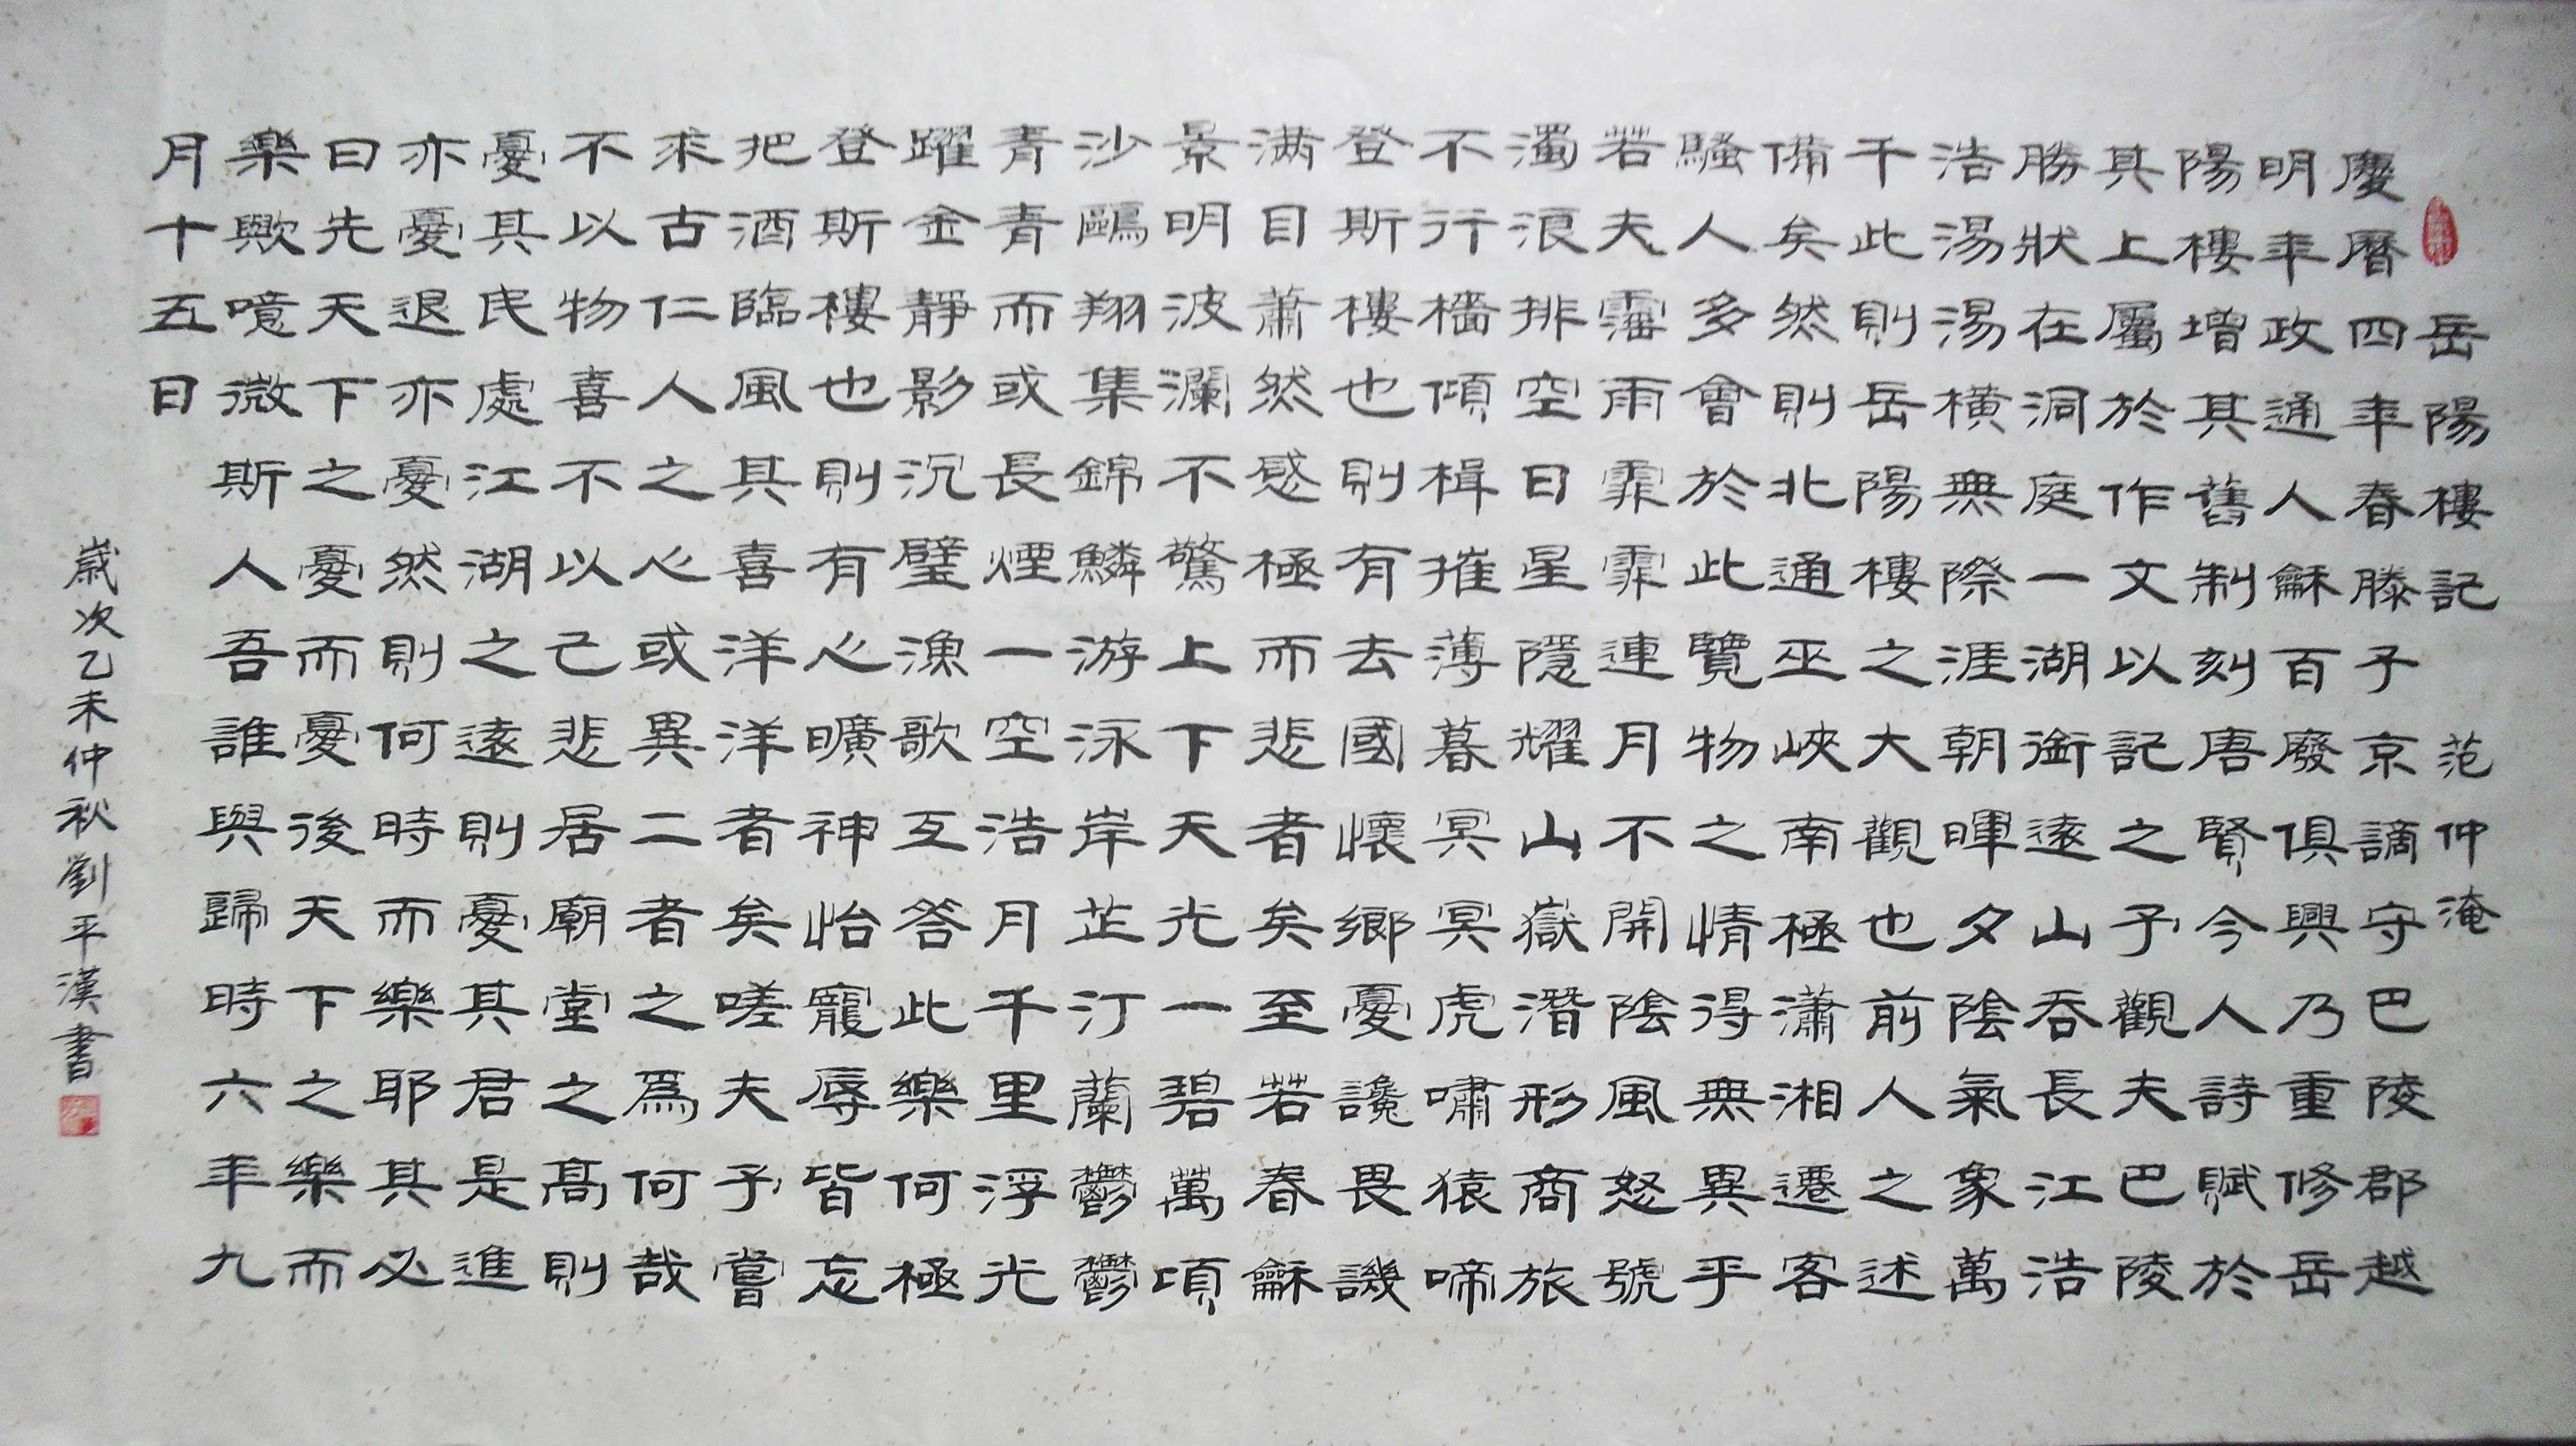 岳陽樓記 范仲淹
慶曆四年春滕子京謫守巴陵郡越
明年政通人龢百廢俱興乃重修岳
陽樓增其舊制刻唐賢今人詩賦於
其上屬於作文以記之予觀夫巴陵
勝狀在洞庭一湖銜遠山吞長江浩
浩湯湯橫無際涯朝暉夕陰氣象萬
千此則岳陽樓之大觀也前人之述
備矣然則北通巫峽南極瀟湘遷客
騷人多會於此覽物之情得無異乎
若夫霪雨霏霏連月不開陰風怒號
濁浪排空日星隱耀山嶽潛形商旅
不行檣傾楫摧薄暮冥冥虎嘯猿啼
登斯樓也則有去國懷鄉憂讒畏譏
滿目蕭然感極而悲者矣至若春龢
景明波瀾不驚上下天光一碧萬頃
沙鷗翔集錦鱗游泳岸芷汀蘭鬱鬱
青青而或長煙一空浩月千里浮光
躍金靜影沉璧漁歌互答此樂何極
登斯樓也則有心曠神怡寵辱皆忘
把酒臨風其喜洋洋者矣嗟夫予嘗
求古仁人之心或異二者之爲何哉
不以物喜不以己悲居廟堂之髙則
憂其民處江湖之遠則憂其君是進
亦憂退亦憂然則何時而樂耶其必
曰先天下之憂而憂後天下之樂而
樂歟噫微斯人吾誰與歸時六年九
月十五日
歲次乙未仲秋劉平漢書